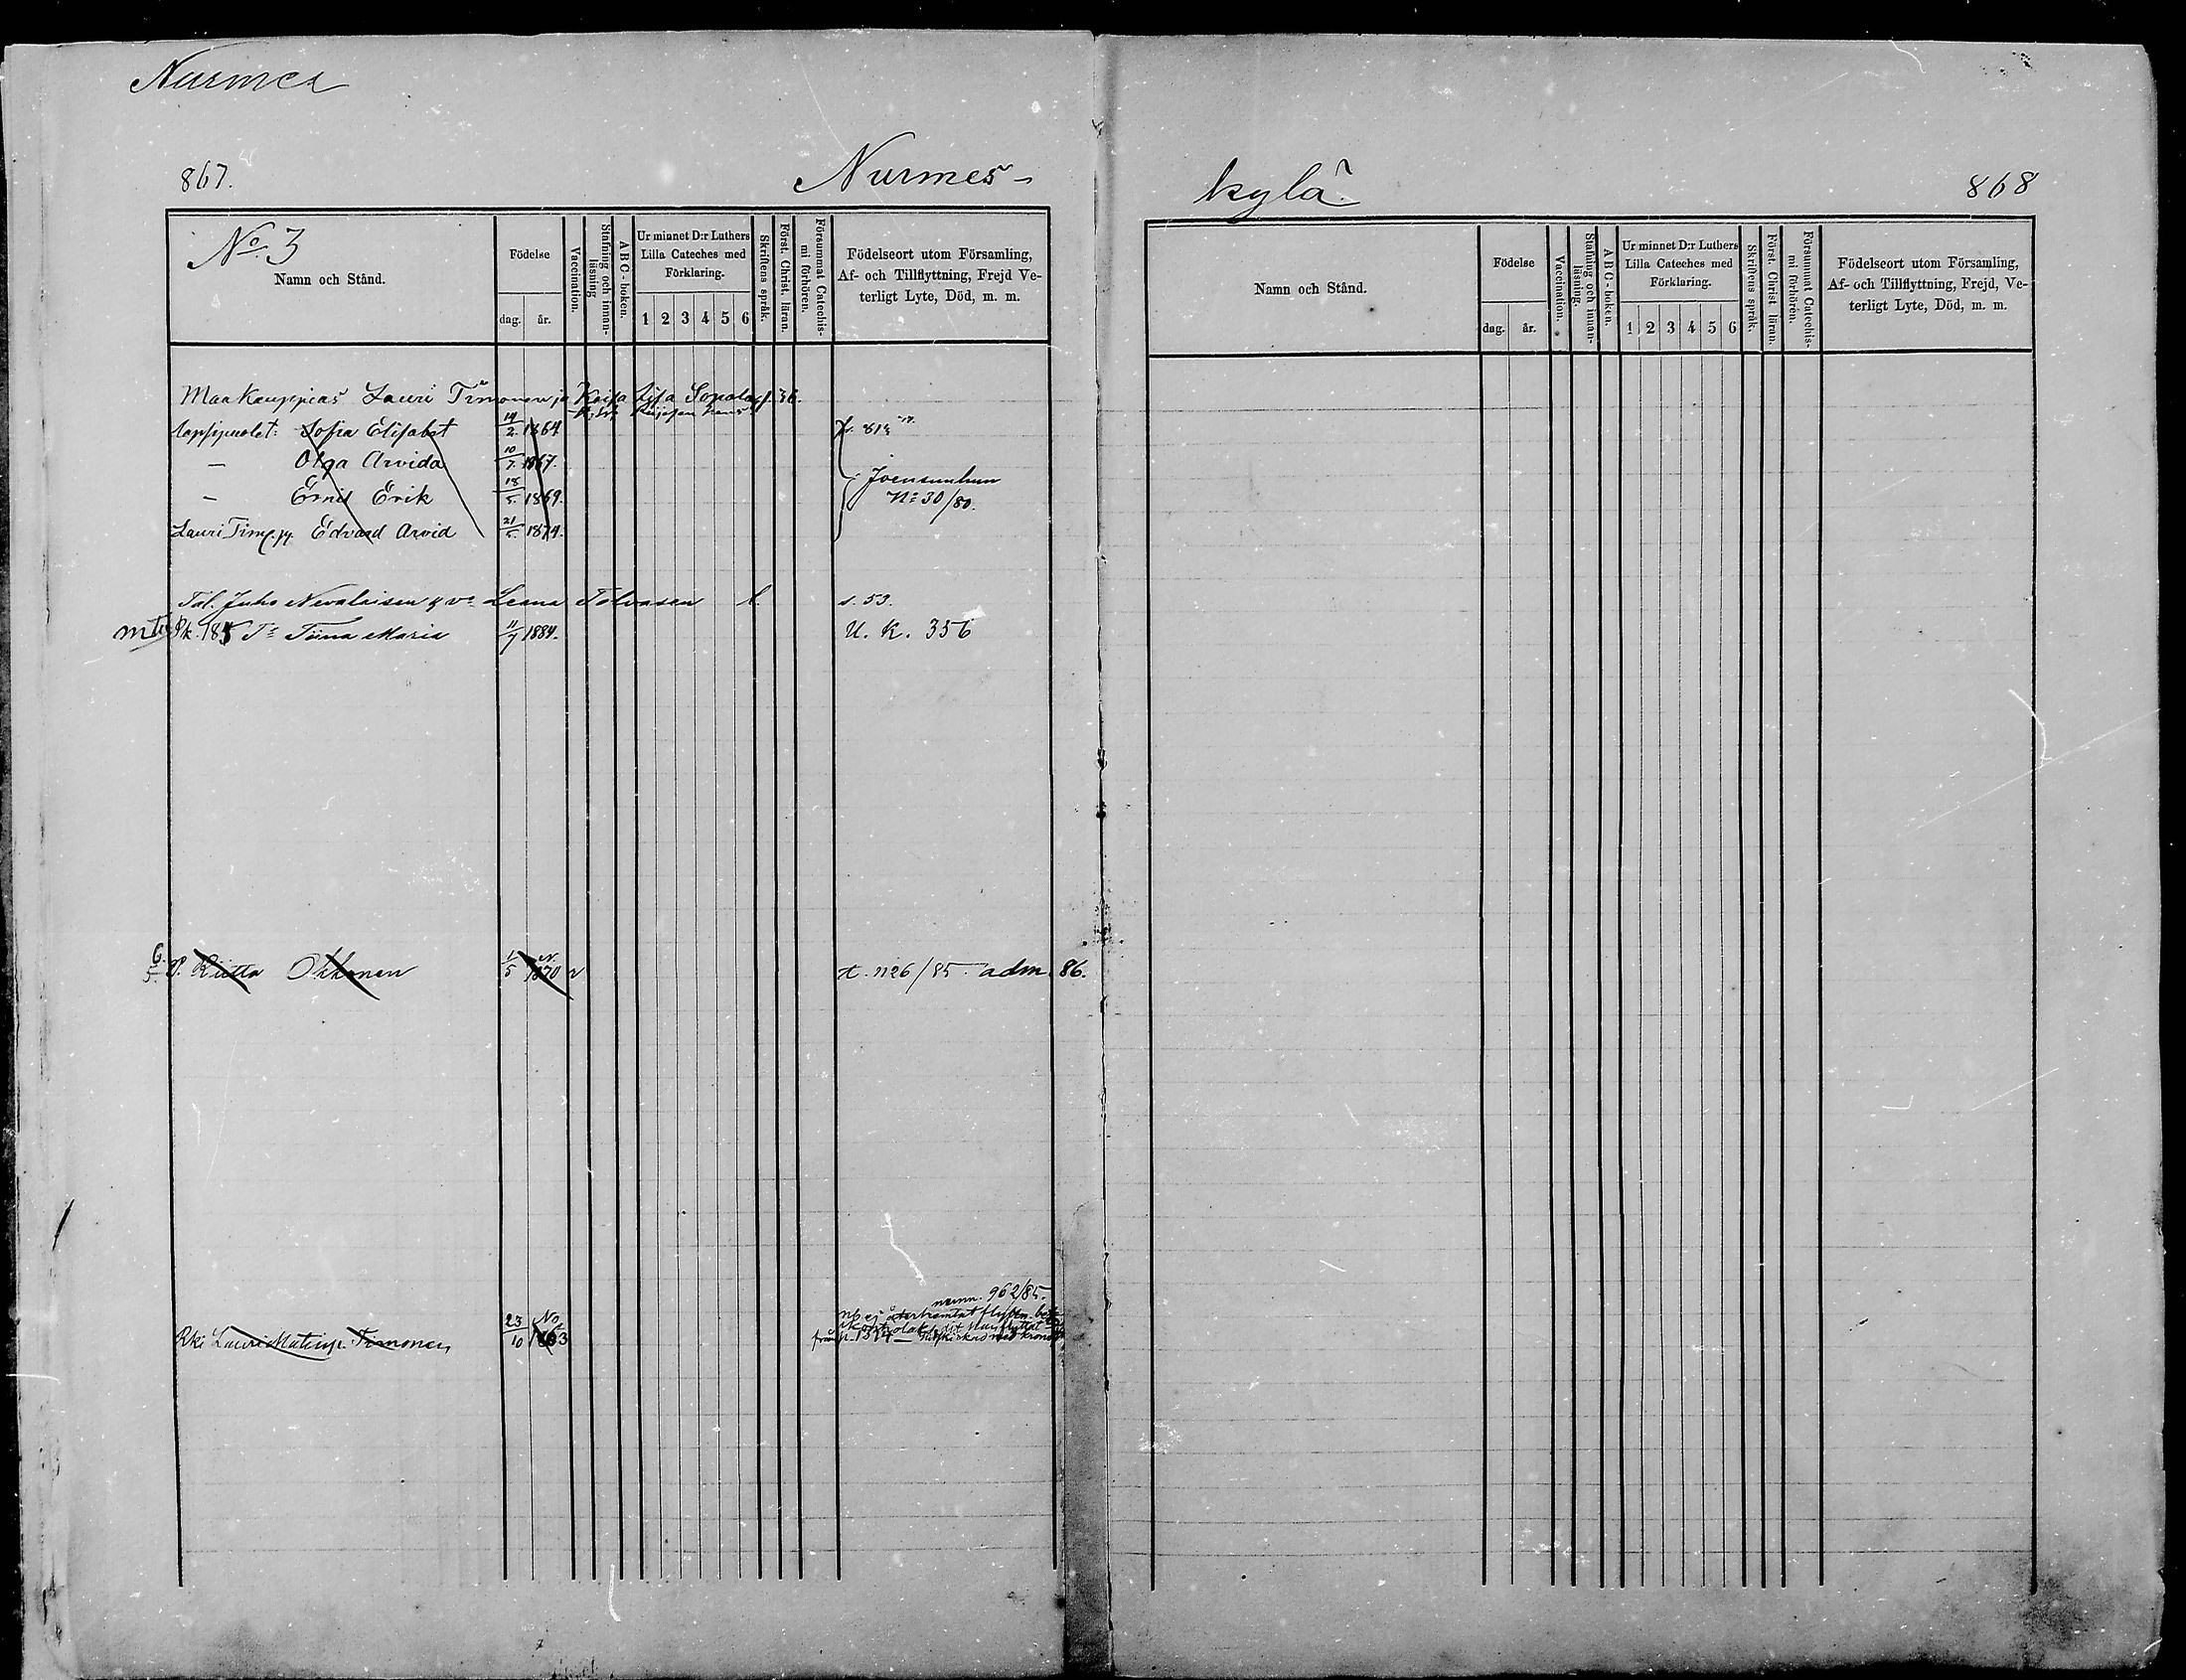 Nurmes
867.
Nurmes-
No. 3
Namn och Stånd.
Födelse
dag. år.
Vaccination.
Stafning och innan-
läsning
ABC-boken.
Ur minnet D:r Luthers
Lilla Cateches med
Förklaring.
1 2 3 4 5 6
Skriftens språk.
Först. Christ. läran.
Försummat Catechis-
mi förhören.
Födelseort utom Församling,
Af- och Tillflyttning, Frejd Ve-
terligt Lyte, Död, m. m.
Maakauppias Lauri Timonen ja Kaisa Lisa s. 36.
lapsipuolet: Sofia Elisabet 14/2 1864
— Olga Arvida 10/7. 1867.
— Ernst Erik 18/5. 1869. Joensuuhun
No 30/80.
Lauri Edvard Arvid 21/5 1874.
Tal. Juho Nevalaisen & vo Leena Tolvasen l. s. 53.
Tr Tiina Maria 11/7 1884. U. K. 356
6.
5. P. Riitta Okkonen 1/5 1870 v t. n 26/85. adm. 86.
962/85.
Rki Lauri Matinp. Timonen 23/10 1863
kylä
868
Namn och Stånd.
Födelse
dag. år.
Vaccination.
Stafning och innan-
läsning.
ABC-boken.
Ur minnet D:r Luthers
Lilla Cateches med
Förklaring.
1 2 3 4 5 6
Skriftens språk.
Först. Christ. läran.
Försummat Catechis-
mi förhören.
Födelseort utom Församling,
Af- och Tillflyttning, Frejd, Ve-
terligt Lyte, Död, m. m.